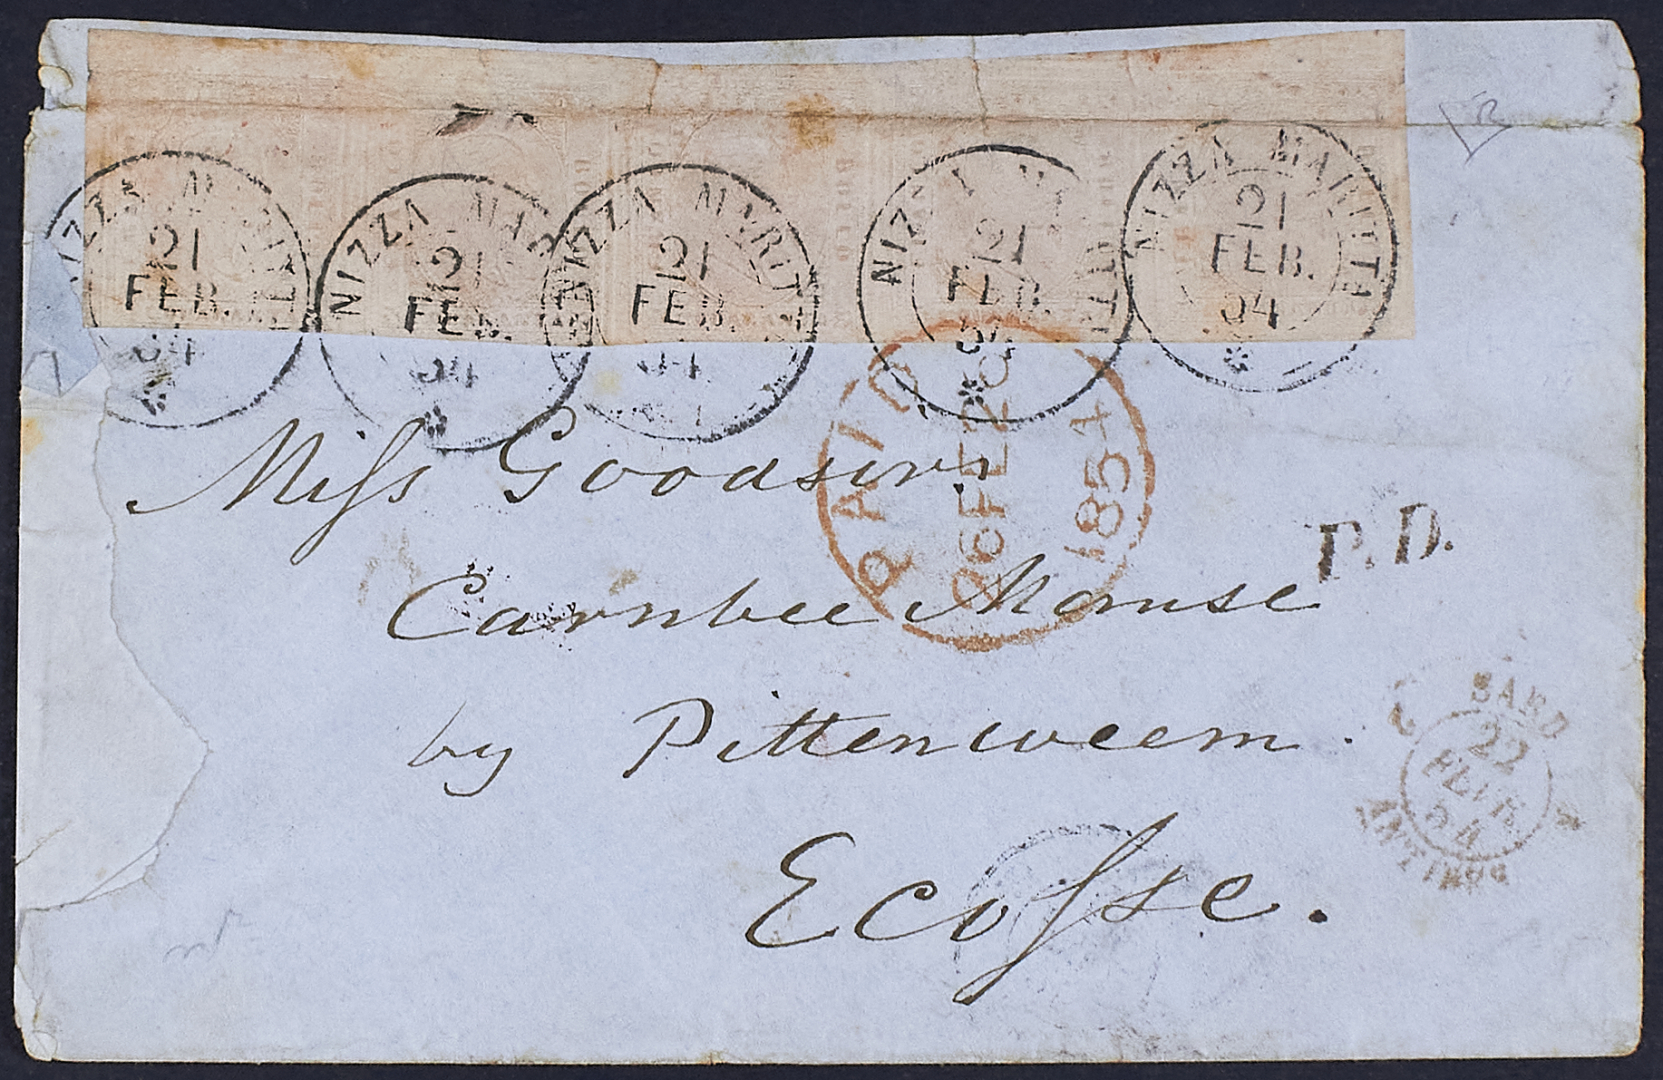 NIZZA MARITT
21
FEB.
54
NIZZA MAR
21
FEB.
54
NIZZA MARITT
21
FEB.
54
NIZZA
21
FEB.
54
NIZZA MARITTA
21
FEB.
54
PAID
26 FE 26
1854
Miss Goodsirs
Carnbee Manse
by Pittenweem.
Ecosse.
P.D.
SARD
22
FEVR
54
ANTIBES